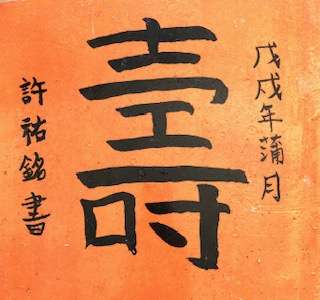 戊戌年蒲月
壽
許祐銘書